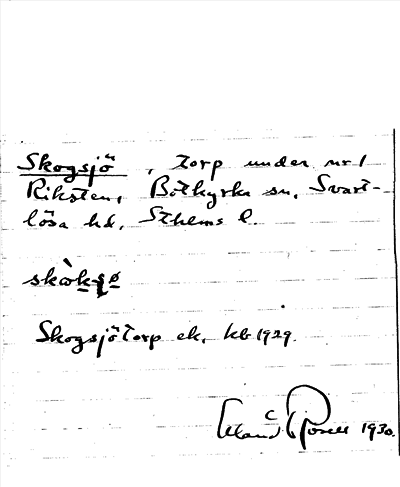 Skogsjö, torp under nr 1
Riksten, Botkyrka sn, Svart-
lösa hd, Sthlms l.
Skogsjötorp ek. kb 1929.
1930.